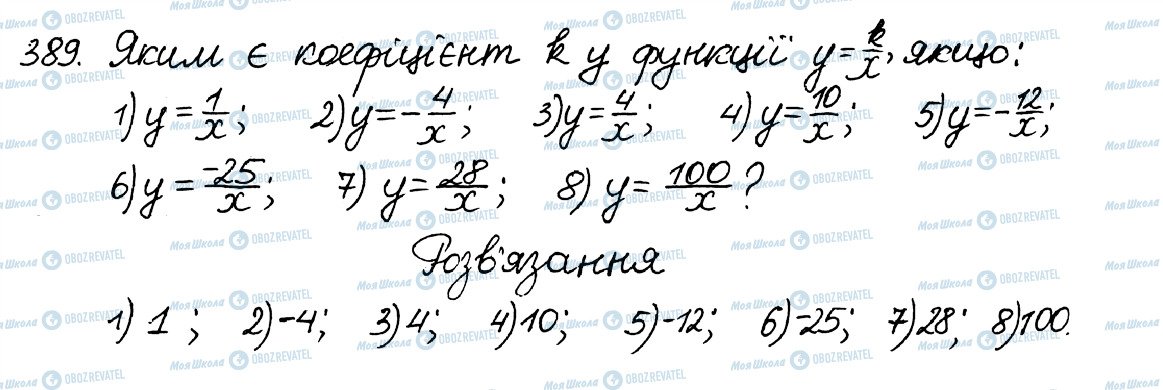 389. Яким є коефіцієнт k у функції y=k/x, якщо:
1) y=1/x; 2) y=-4/x; 3) y=4/x; 4) y=10/x; 5) y=-12/x;
6) y=-25/x; 7) y=28/x; 8) y=100/x?
Розв'язання
1) 1; 2) -4; 3) 4; 4) 10; 5) -12; 6) -25; 7) 28; 8) 100.
Моя Школа OBOZREVATEL